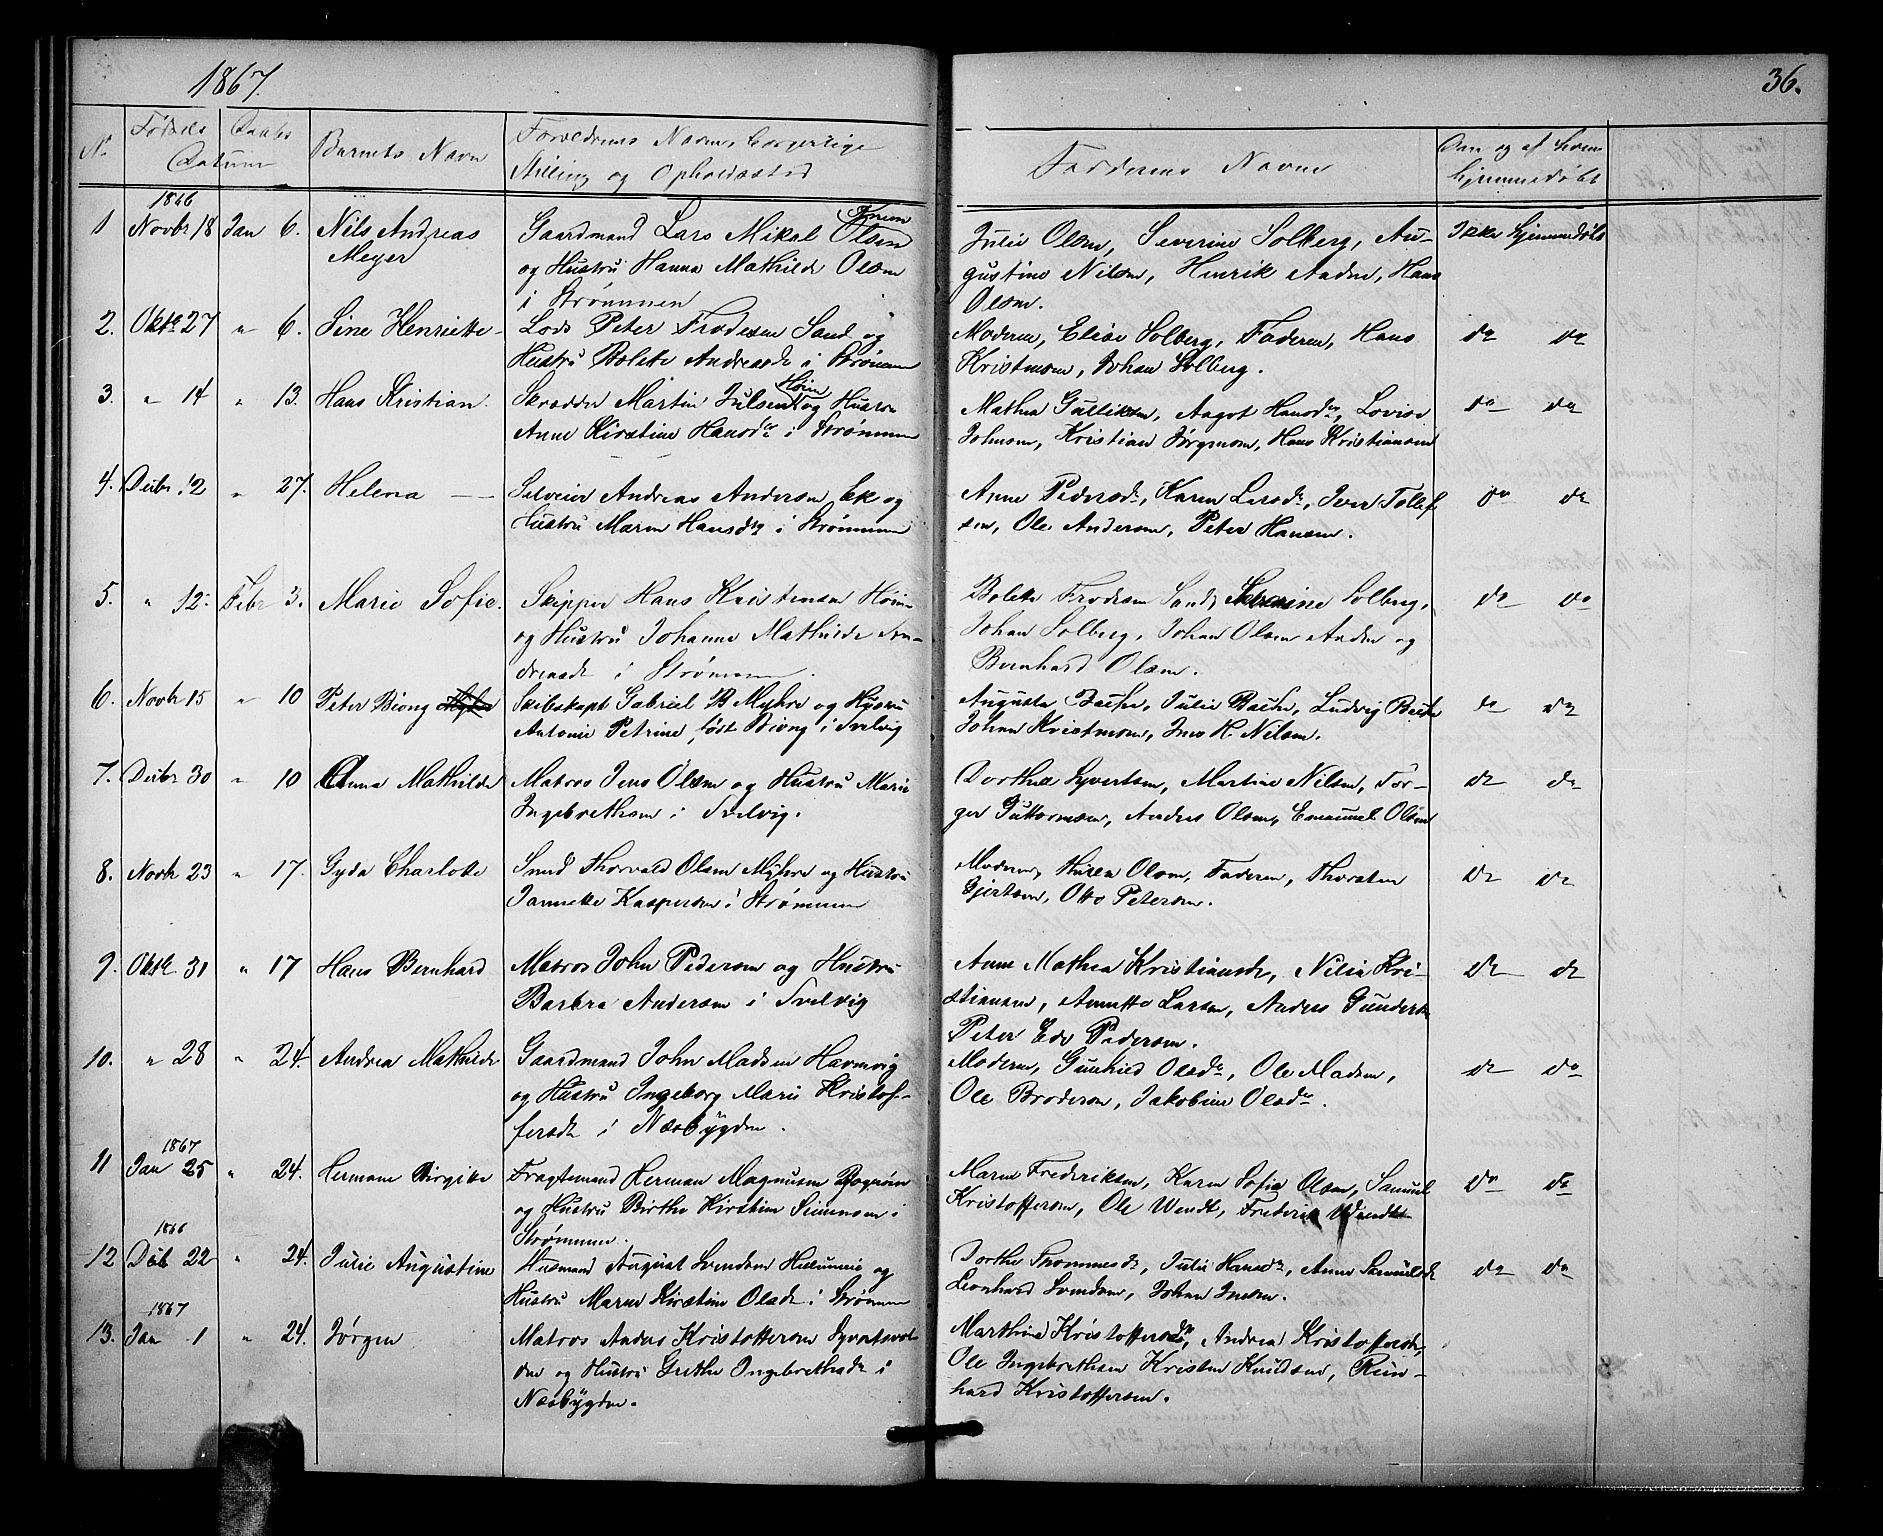 1867.
36.
No Fødsels Daabs Datum Barnets Navn Forældrenes Navne, borgerlige Stilling og Opholdssted
Faddernes Navne Om og af hvem hjemmedøbt
1866
1 Novbr 18 Jan 6. Nils Andreas Meyer
Gaardmand Lars Mikal Olsen
og Hustru Hanna Mathilde Olsen
i Strømmen
Julie Olsen, Severine Solberg, Au-
gustine Nilsen, Henrik Andr, Hans
Olsen.
Ikke hjemmedøbt
2. Oktbr 27 " 6. Sine Henriette
Lods Peter Frodesen Sand og
Hustru Bolette Andreasdr i Strømmen
Moderen, Elise Solberg, Faderen, Hans
Kristensen, Johan Solberg.
do do
3. " 14 " 13. Hans Kristian.
Skrædder Martin Julsen Høien og Hustru
Anne Kirstine Hansdr i Strømmen
Mathea Gulliksen, Aagot Hansdr, Lovise
Johnsen, Kristian Jørgensen, Hans Kristiansen
do do
4. Decbr 12 " 27. Helena
Selveier Andreas Andersen Ek og
Hustru Maren Hansdr i Strømmen
Anne Pedersdr, Karen Larsdr, Iver Tollef
sen, Ole Andersen, Peter Hansen.
do do
5. " 12. Febr 3. Marie Sofie.
Skipper Hans Kristensen Høien
og Hustru Johanne Mathilde An-
dreasdr i Strømmen.
Bolette Frodesen Sand, Severine Solberg,
Johan Solberg, Johan Olsen Andr og
Bernhard Olsen.
do do
6. Novbr 15 " 10 Peter Biong
Skibskapt Gabriel B Myhre og Hustru
Antonie Petrine født Biong i Svelvig
Augusta Bache, Julie Bache, Ludvig Bache
Johan Kristensen, Jens H. Nilsen.
do do
7. Decbr 30 " 10 Anna Mathilde
Matros Jens Olsen og Hustru Marie
Ingebrethsen i Svelvig.
Dorthea Syvertsen, Martine Nilsen, Tor-
ger Guttormsen, Anders Olsen, Emanuel Olsen
do do
8. Novbr 23 " 17. Gyda Charlotte
Smed Thorvald Olsen Myhre og Hustru
Jannette Kaspersen i Strømmen
Moderen, Thirea Olsen, Faderen, Thorsten
Gjertsen, Otto Petersen.
do do
9. Oktbr 31 " 17 Hans Bernhard
Matros John Pedersen og Hustru
Barbra Andersen i Svelvig
Anne Mathea Kristiansdr, Nilia Kri-
stiansen, Annette Larsen, Anders Gundersen
Peter Edv Pedersen.
do do
10. " 28 " 24. Andrea Mathilde
Gaardmand John Madsen Havnevig
og Hustru Ingeborg Marie Kristof-
fersdr i Næsbygden.
Moderen, Gunhild Olsdr, Ole Madsen,
Ole Brodersen, Jakobine Olsdr.
do do
1867
11 Jan 25 " 24. Hermane Birgitte
Fragtemand Herman Magnusen
og Hustru Birthe Kirstine Simensen i
Strømmen.
Maren Frederiksen, Karen Sofie Olsen, Samuel
Kristoffersen, Ole Wendt, Frederik Wendt
do do
1866
12 Decb 22 " 24. Julie Augustine
Husmand August Svendsen og
Hustru Maren Kirstine Olsdr i Strømmen
Dorthe Thommesdr, Julie Hansdr, Anne Samuelsdr
Leonhard Svendsen, Johan Jensen.
do do
1867
13. Jan 1 " 24. Jørgen
Matros Anders Kristoffersen Syvertsvol
den og Hustru Grethe Ingebrethsdr i
Næsbygden.
Marthine Kristoffersdr, Andrea Kristoffersdr,
Ole Ingebrethsen Kristen Knudsen, Rein-
hard Kristoffersen.